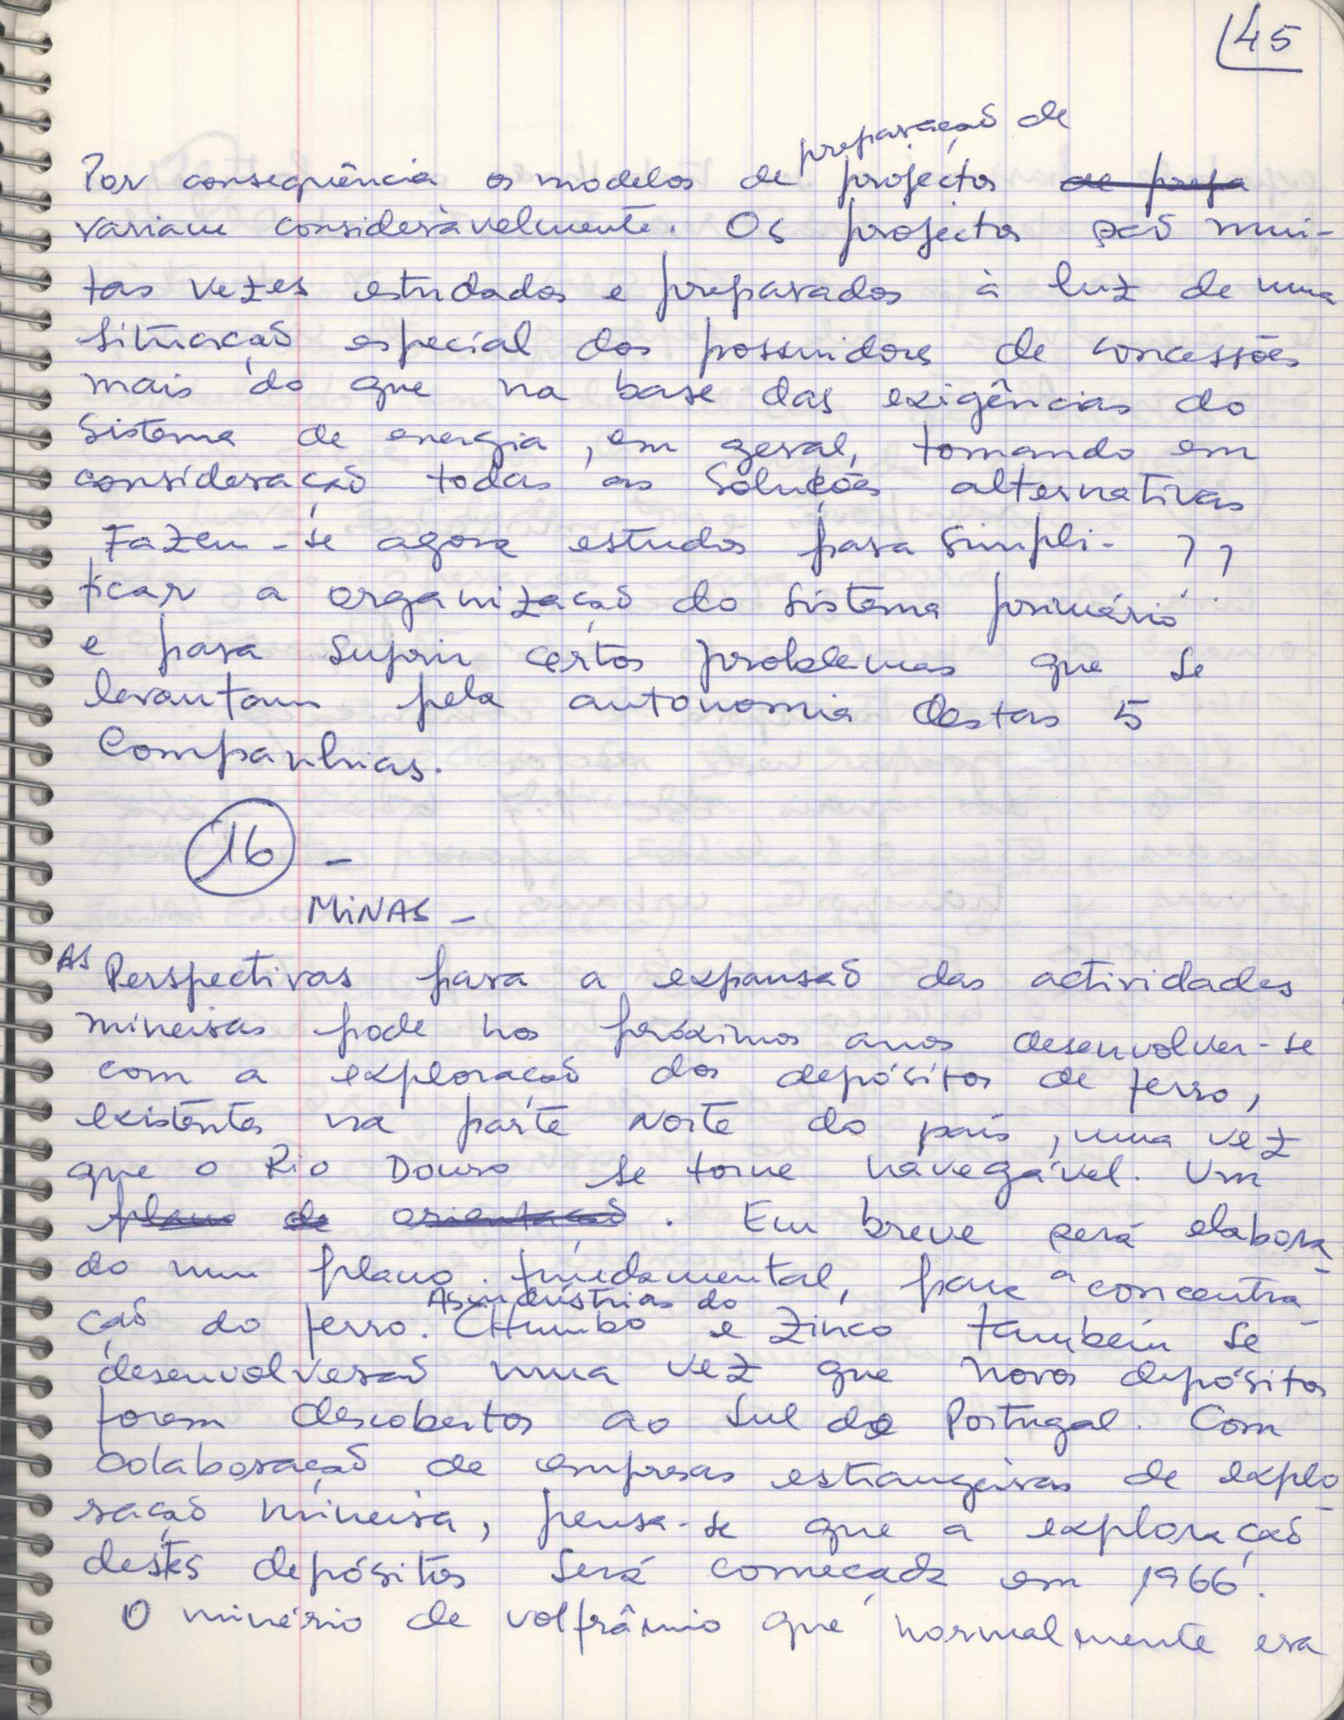 45
preparação de
Por consequência os modelos de projectos de prepa
variam consideràvelmente. Os projectos são mui-
tas vezes estudados e preparados à luz de uma
situação especial dos possuidores de concessões
mais do que na base das exigências do
sistema de energia, em geral, tomando em
consideração todas as soluções alternativas
Fazem-se agora estudos para simpli- ??
ficar a organização do sistema primário
e para suprir certos problemas que se
levantam pela autonomia destas 5
Companhias.
16 -
MINAS -
As Perspectivas para a expansão das actividades
mineiras pode nos próximos anos desenvolver-se
com a exploração dos depósitos de ferro,
existentes na parte Norte do país, uma vez
que o Rio Douro se torne navegável. Um
plano de orientação. Em breve será elabora
do um plano fundamental, para a concentra-
ção do ferro. As indústrias do Chumbo e Zinco também se
desenvolverão uma vez que novos depósitos
forem descobertos ao Sul de Portugal. Com
colaboração de empresas estrangeiras de explo
ração mineira, pensa-se que a exploração
destes depósitos será começada em 1966.
O minério de volfrâmio que normalmente era